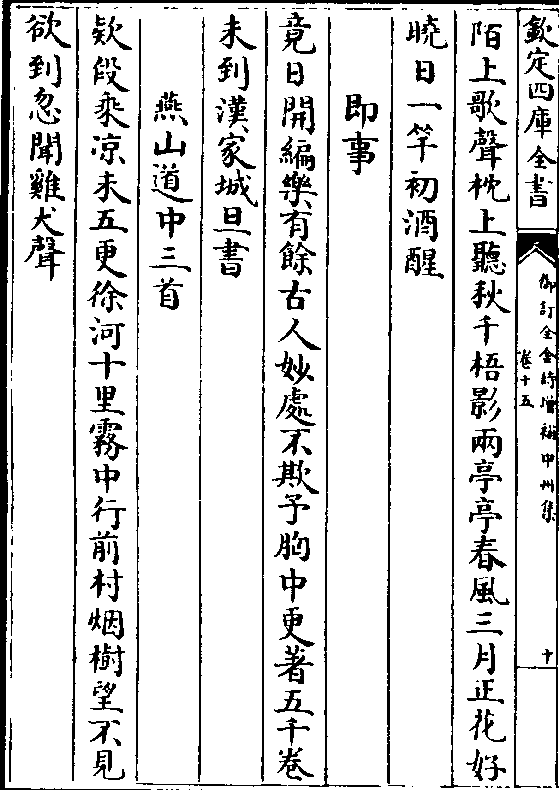 欽定四庫全書
御訂全金詩增補中州集
卷十五
十
陌上歌聲枕上聽秋千梧影兩亭亭春風三月正花好
曉日一竿初酒醒
即事
竟日開編樂有餘古人妙處不欺予胸中更著五千卷
未到漢家城旦書
燕山道中三首
欵段乘凉未五更徐河十里霧中行前村烟樹望不見
欲到忽聞雞犬聲